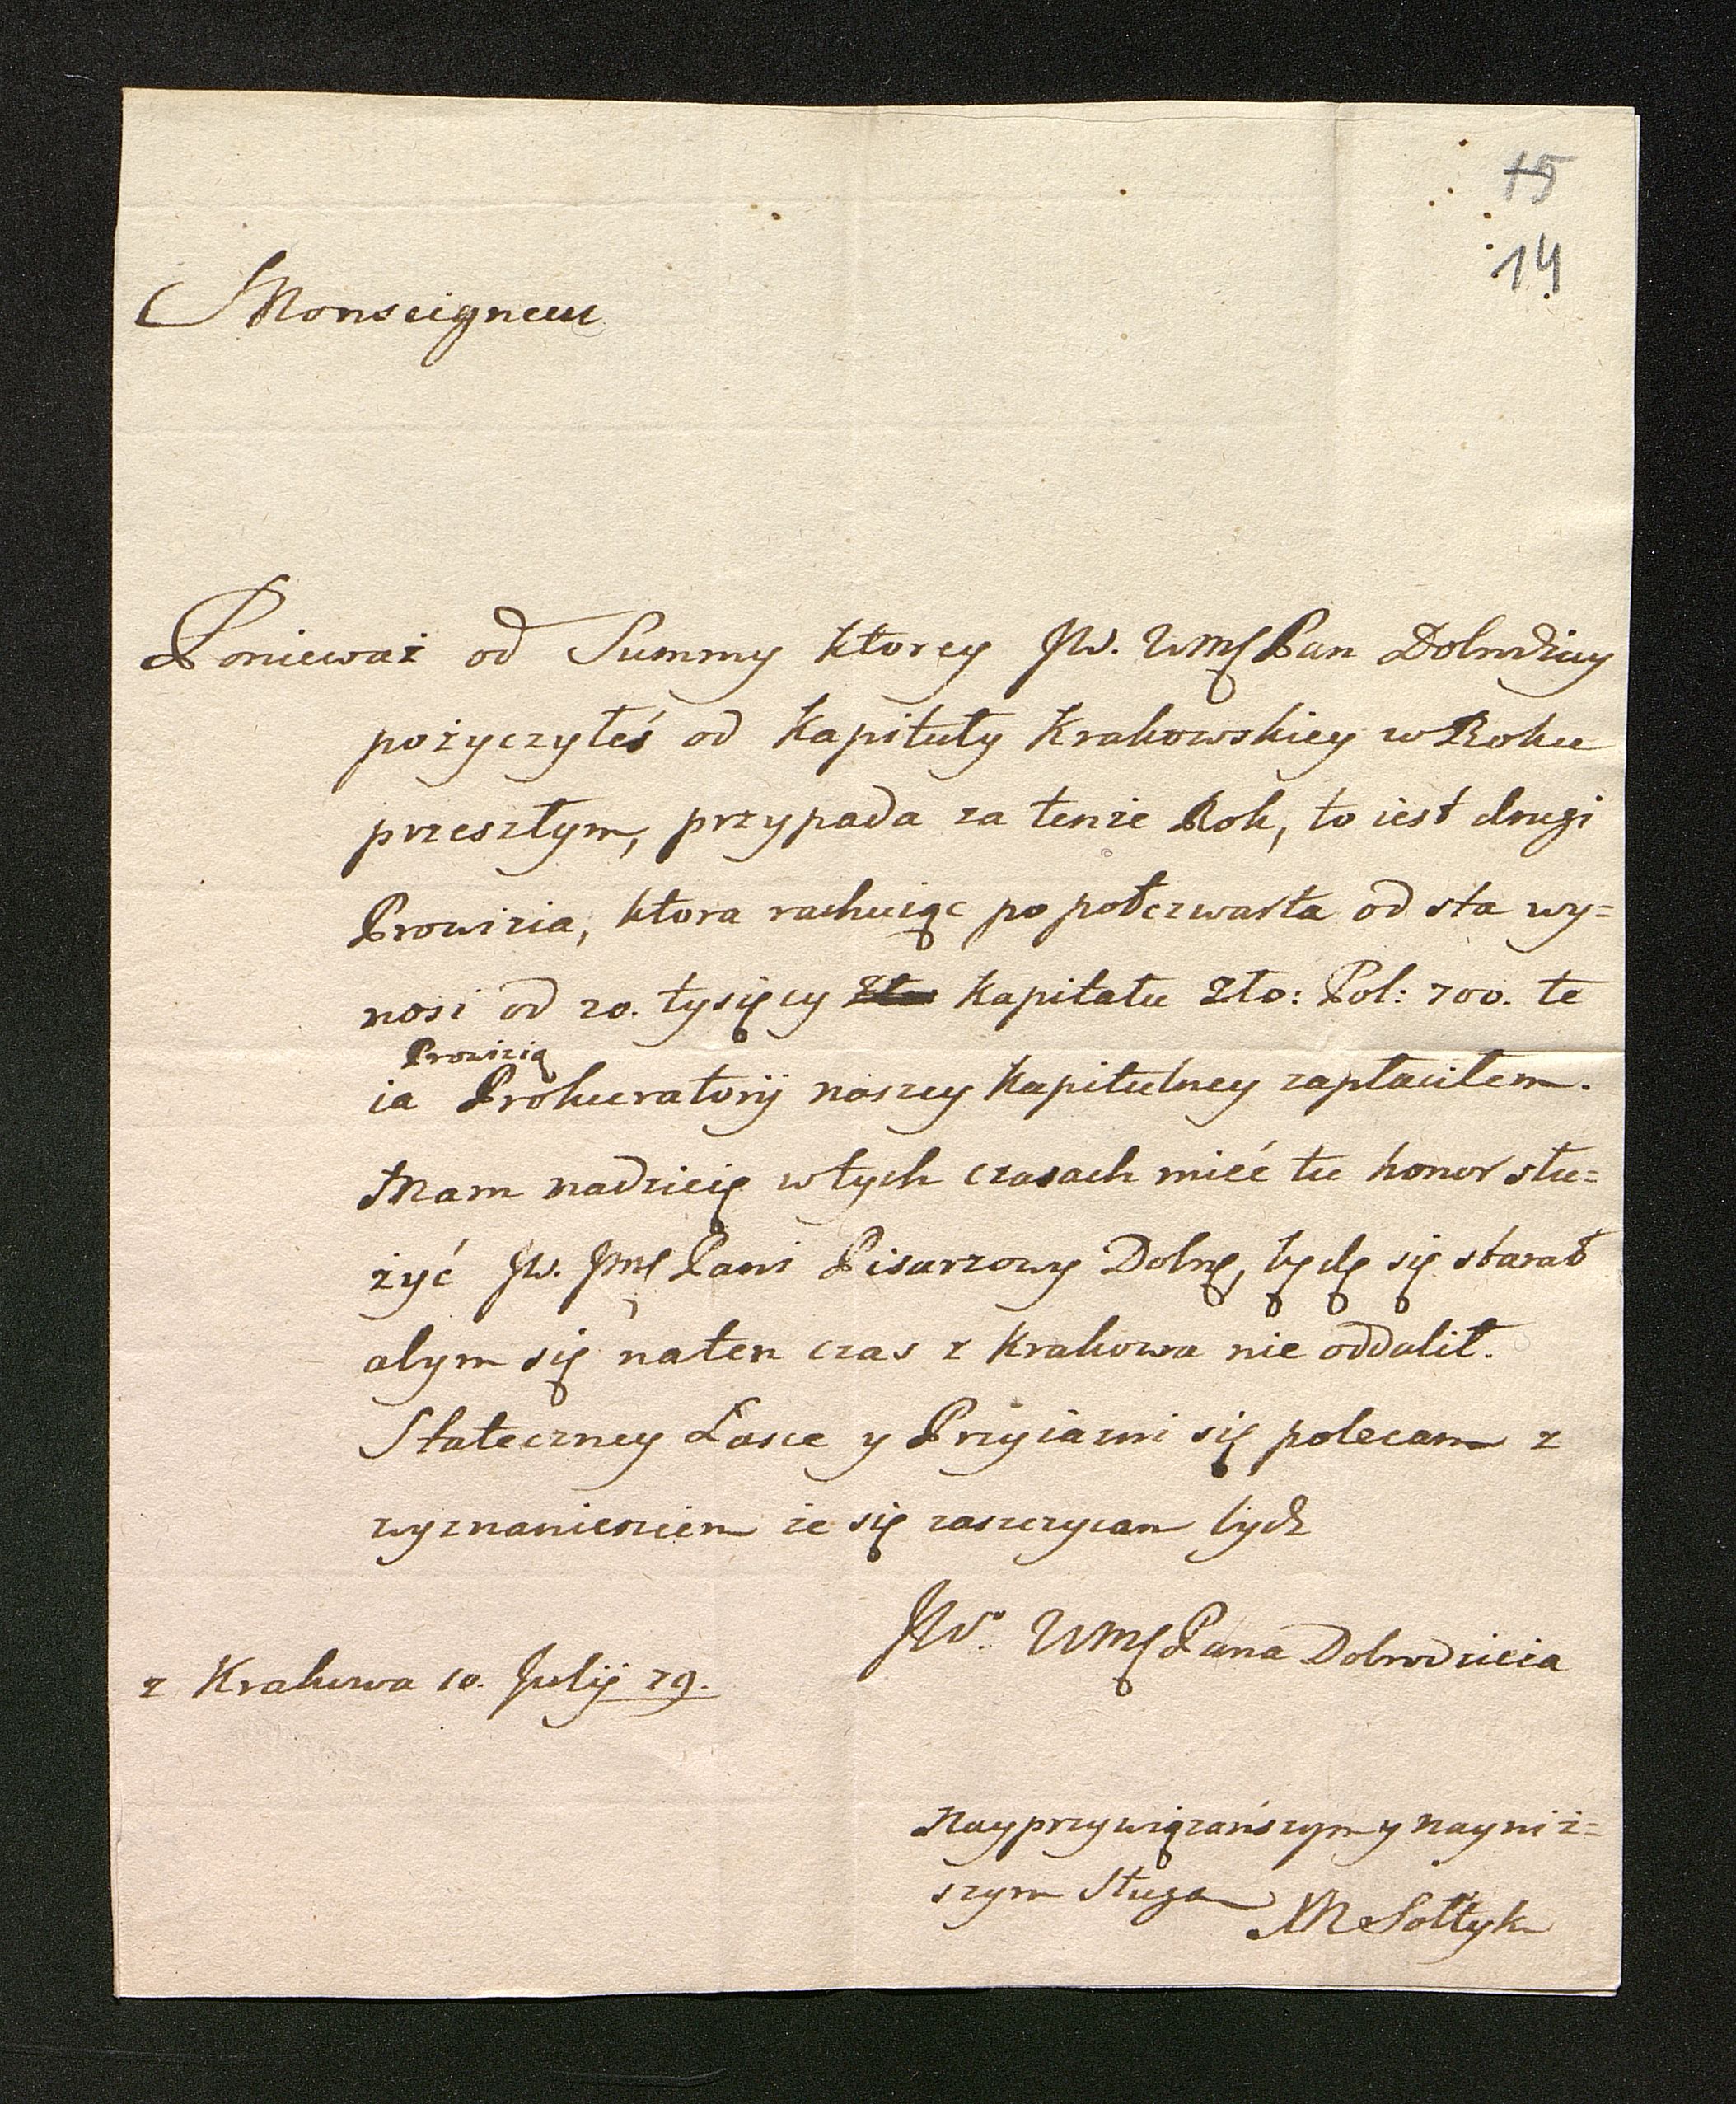 15
14
Monseigneur
Ponieważ od Summy ktorey JW. WMę Pan Dobrodziey
pożyczyłeś od Kapituły Krakowskiey w Roku
przeszłym, przypada za tenże Rok, to iest drugi
Prowizia, ktora rachuiąc po połczwarta od sta wy=
nosi od 20. tysięcy Zło Kapitału Zło: Pol: 700. te
Prowizią
ia Prokuratorij naszey Kapitulney zapłaciłem.
Mam nadzieię w tych czasach mieć tu honor słu=
żyć JW. Jmę Pani Pisarzowy Dobrę, będę się starał
abym się na ten czas z Krakowa nie oddalił.
Stateczney Łasce y Przyiazni się polecam z
wyznanieniem że się zaszczycam bydź
JWo. WMę Pana Dobrodzieia
z Krakowa 10. Julij 79.
Nayprzywiązańszym y nayniż=
szym Sługa
M Sołtyk